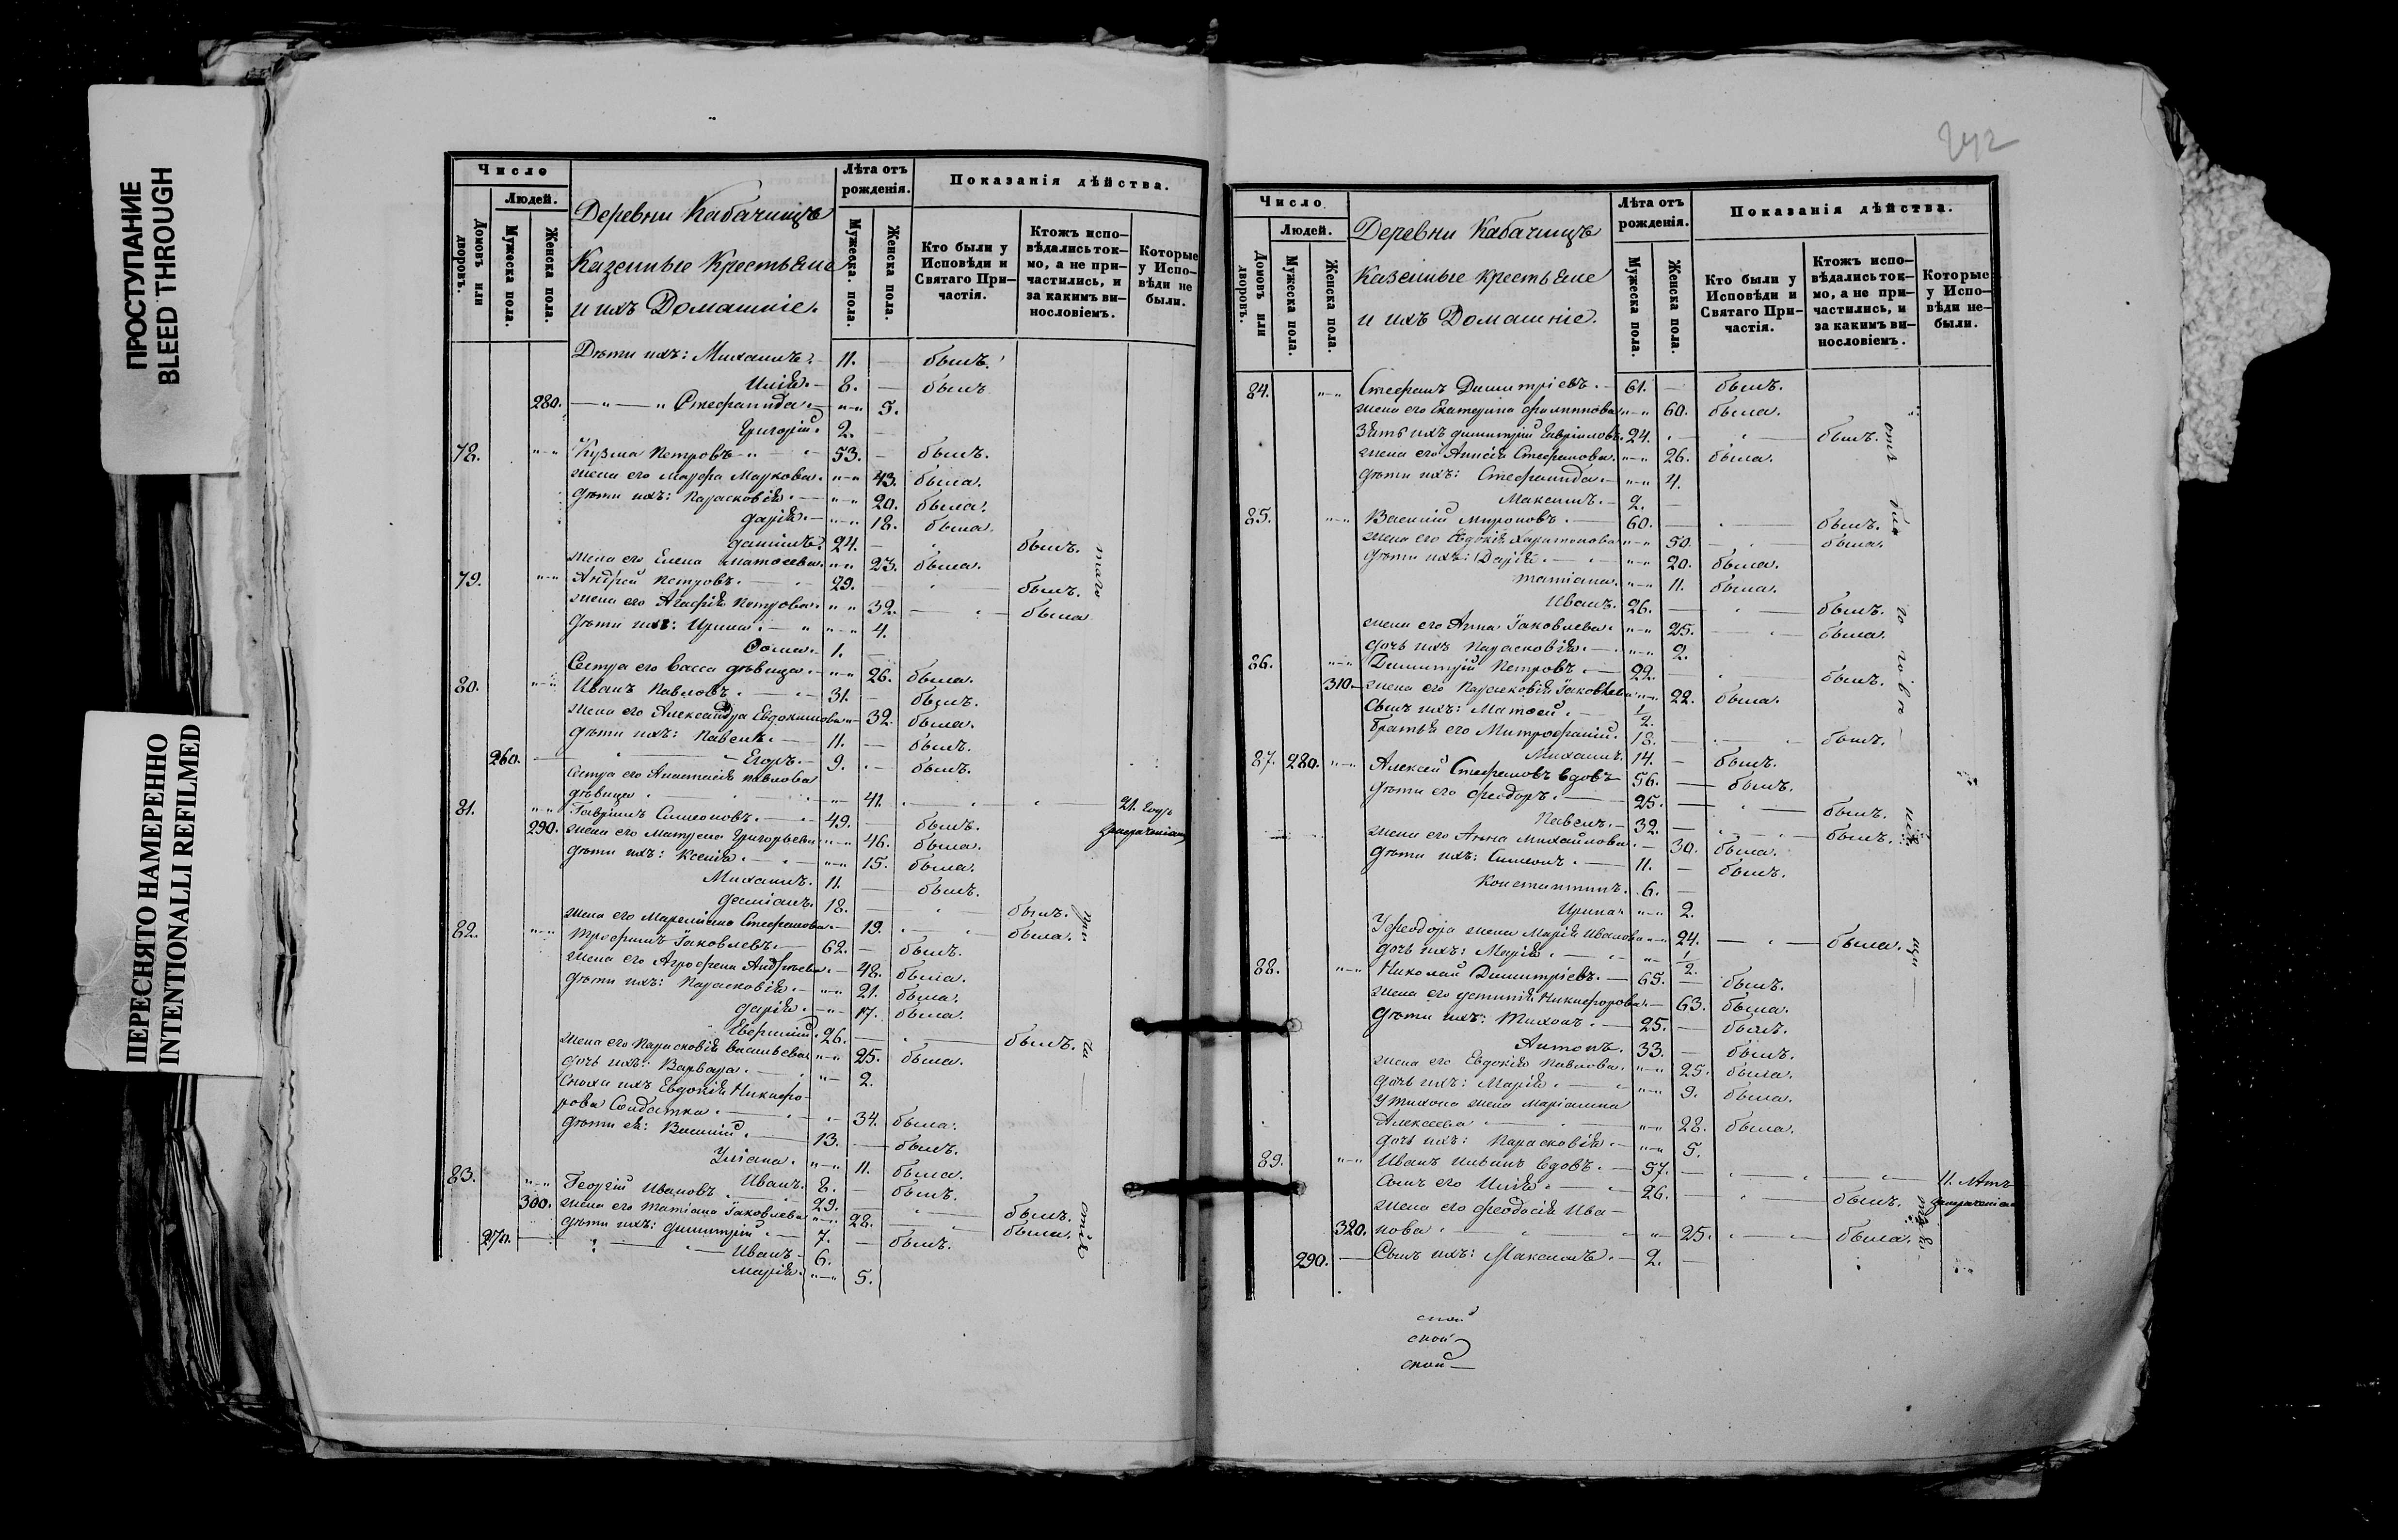 ПРОСТУПАНИЕ
BLEED THROUGH
ПЕРЕСНЯТО НАМЕРЕННО
INTENTIONALLI REFILMED
Число
Людей.
Домовъ или дворовъ.
Мужеска пола.
Женска пола.
Деревни Кабачищъ
Казенные Крестьяне
и ихъ Домашніе.
Лѣта отъ рожденія.
Мужеска. пола.
Женска пола.
Показанія дѣйства.
Кто были у Исповѣди и Святаго При-частія.
Ктожъ испо-вѣдались ток-мо, а не при-частились, и за какимъ ви-нословіемъ.
Которые у Испо-вѣди не были.
Дѣти ихъ: Михаилъ. 11. — былъ.
Илія. 8. — былъ
280. Стефанида. 5.
Григорій. 2. —
78. Кузма Петровъ 53. — былъ.
жена его Марфа Маркова. 43. была.
Дѣти ихъ: Парасковія. 20. была.
Дарія. 18. была.
Даніилъ. 24. — былъ.
жена его Елена Матоеева. 23. была.
79. Андрей Петровъ. 29. — былъ.
жена его Агафія Петрова. 32. — была
Дѣти ихъ: Ирина. 4.
Ѳома. 1. —
Сестра его Васса дѣвица. 26. была.
80. Иванъ Павловъ. 31. — былъ.
жена его Александра Евдокимова 32. была.
Дѣти ихъ: Павелъ. 11. — былъ.
260. Егоръ. 9. — былъ.
Сестра его Анастасія Павлова
дѣвица 41. 21. Годъ
81. Гавріилъ Симеоновъ. 49. — былъ.
290. жена его Матрена Григорьева 46. была.
Дѣти ихъ: Ксенія. 15. была.
Михаилъ. 11. — былъ.
Деміанъ. 18. — былъ.
жена его Стефанова 19. — была.
82. Трофимъ Іаковлевъ. 62. — былъ.
жена его Агрофена Андрѣева. 48. была.
Дѣти ихъ: Парасковія. 21. была.
Дарія. 17. была.
26. — былъ.
жена его Парасковія Васильева 25. была.
Дочь ихъ: Варвара. 2.
Сноха ихъ Евдокія Никифо-
рова Солдатка. 34. была.
Дѣти ея: Василій. 13. — былъ.
Уліана. 11. была.
Иванъ. 8. — былъ.
83. Георгій Ивановъ 29. — былъ.
300. жена его Татіана Іаковлева 28. — была.
Дѣти ихъ: Димитрій. 7. — былъ.
270. Иванъ. 6.
Марія. 5.
242
Число
Людей.
Домовъ или дворовъ.
Мужеска пола.
Женска пола.
Деревни Кабачищъ
Казенные крестьяне
и ихъ Домашніе.
Лѣта отъ рожденія.
Мужеска пола.
Женска пола.
Показанія дѣйства.
Кто были у Исповѣди и Святаго При-частія.
Ктожъ испо-вѣдались ток-мо, а не при-частились, и за какимъ ви-нословіемъ.
Которые у Испо-вѣди не-были.
84. Стефанъ Димитріевъ. 61. — былъ.
жена его Екатерина Филиппова 60. была.
Зять ихъ Димитрій Гавріиловъ. 24. — былъ.
жена его Анисія Стефанова. 26. была.
Дѣти ихъ: Стефанида. 4.
Максимъ. 2. —
85. Василій Мироновъ. 60. — былъ.
жена его Евдокія Харитонова 50. — была.
Дѣти ихъ: Дарія. 20. была.
Татіана. 11. была.
Иванъ. 26. — былъ.
жена его Анна Іаковлева. 25. — была.
Дочь ихъ Парасковія. 2.
86. Димитрій Петровъ. 22. — былъ.
310. жена его Парасковія Іаковлева 22. была.
Сынъ ихъ: Матоей. 1/2.
Братья его Митрофаній. 18. — былъ.
Михаилъ. 14. — былъ.
87. 280. Алексей Стефановъ вдовъ 56. — былъ.
Дѣти его Феодоръ. 25. — былъ.
Павелъ. 32. — былъ.
жена его Анна Михайлова. 30. была.
Дѣти ихъ: Симеонъ. 11. — былъ.
Константинъ. 6. —
Ирина. 2.
У Феодора жена Марія Иванова 24. — была.
Дочь ихъ: Марія. 1/2.
88. Николай Димитріевъ. 65. — былъ.
жена его Устинія Никифорова 63. была.
Дѣти ихъ: Тихонъ. 25. — былъ.
Антонъ. 33. — былъ.
жена его Евдокія Павлова. 25. была.
Дочь ихъ: Марія. 9. была.
У Тихона жена Маріамна
Алексеева 28. была.
Дочь ихъ: Парасковія. 5.
89. Иванъ Ильинъ вдовъ. 57. — 11. Лѣтъ
Сынъ его Илія. 26. — былъ.
жена его Феодосія Ива-
320. нова 25. — была.
290. Сынъ ихъ: Максимъ. 2. —
ской
ской
ской